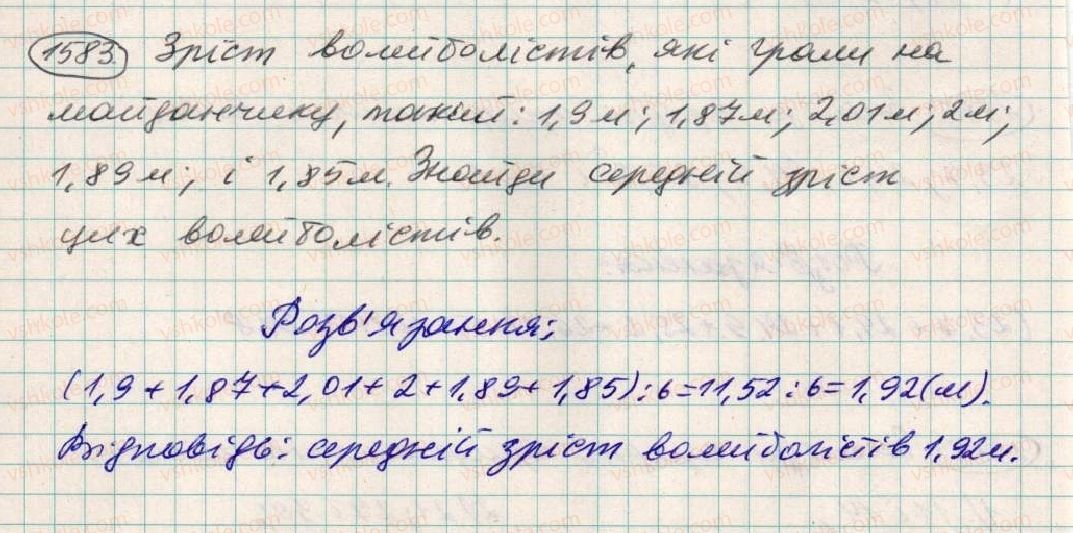 1583. Зріст волейболістів, які грали на
майданчику, такий: 1,9 м; 1,87 м; 2,01 м; 2 м;
1,89 м; і 1,85 м. Знайди середній зріст
цих волейболістів.
Розв'язання:
(1,9 + 1,87 + 2,01 + 2 + 1,89 + 1,85) : 6 = 11,52 : 6 = 1,92 (м).
Відповідь: середній зріст волейболістів 1,92 м.